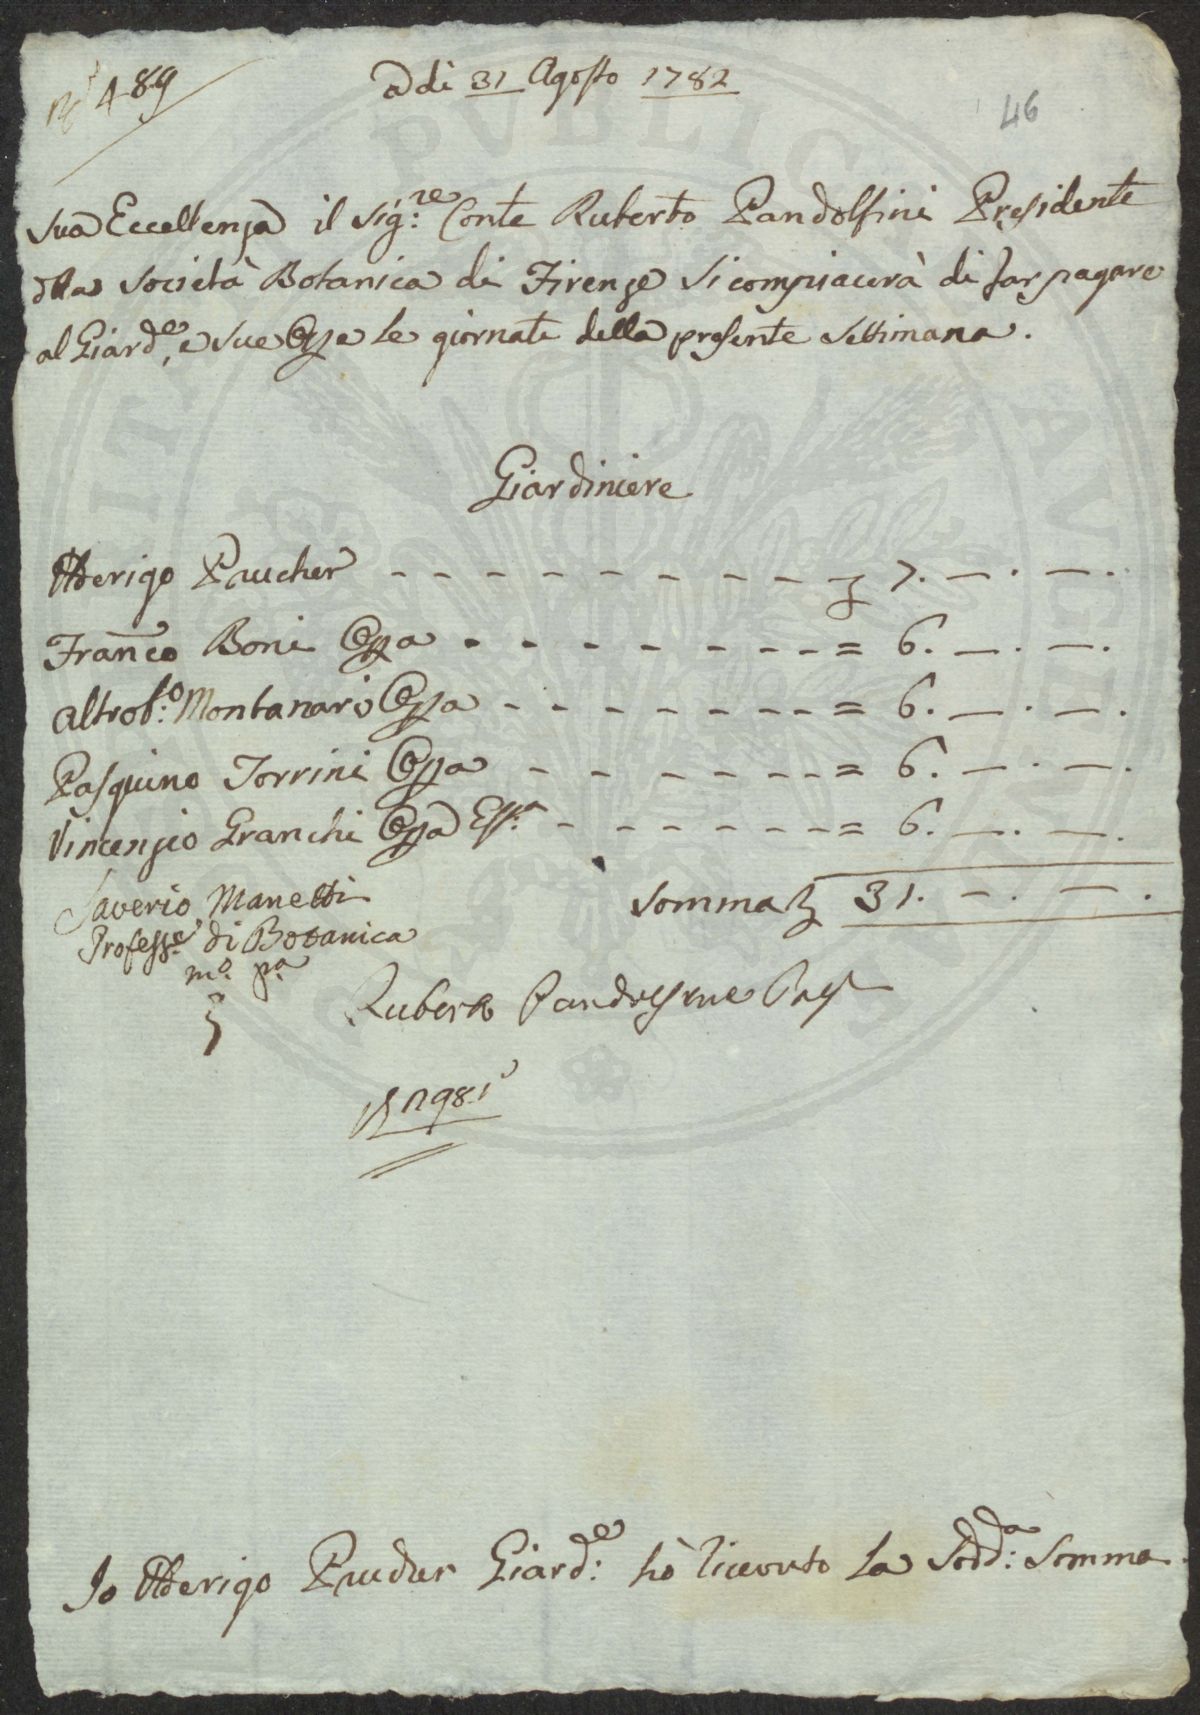 N° 489
Adi 31 Agosto 1782
46
Sua Eccellenza il Sig:re Conte Ruberto Pandolfini Presidente
della Società Botanica di Firenze si compiacerà di far pagare
al Giard:e, e sue Opre le giornate della presente Settimana.
Giardiniere
Pucher - - - - - - - - - - - 7. — . — .
Franco Boni Opra - - - - - - - - = 6. — . — .
Altrob:o Montanari Opra - - - - - - - - = 6. — . — .
Pasquino Torrini Opra - - - - - - - = 6. — . — .
Vincenzio Granchi Opra - - - - - - - = 6. — . — .
Saverio Manetti
Somma 31. — . — .
Profess:e di Botanica
mo: pa:
Ruberto Pandolfini Pres
981
Io Giard:e hò riceuto La Sodd:a Somma
PVBLICA